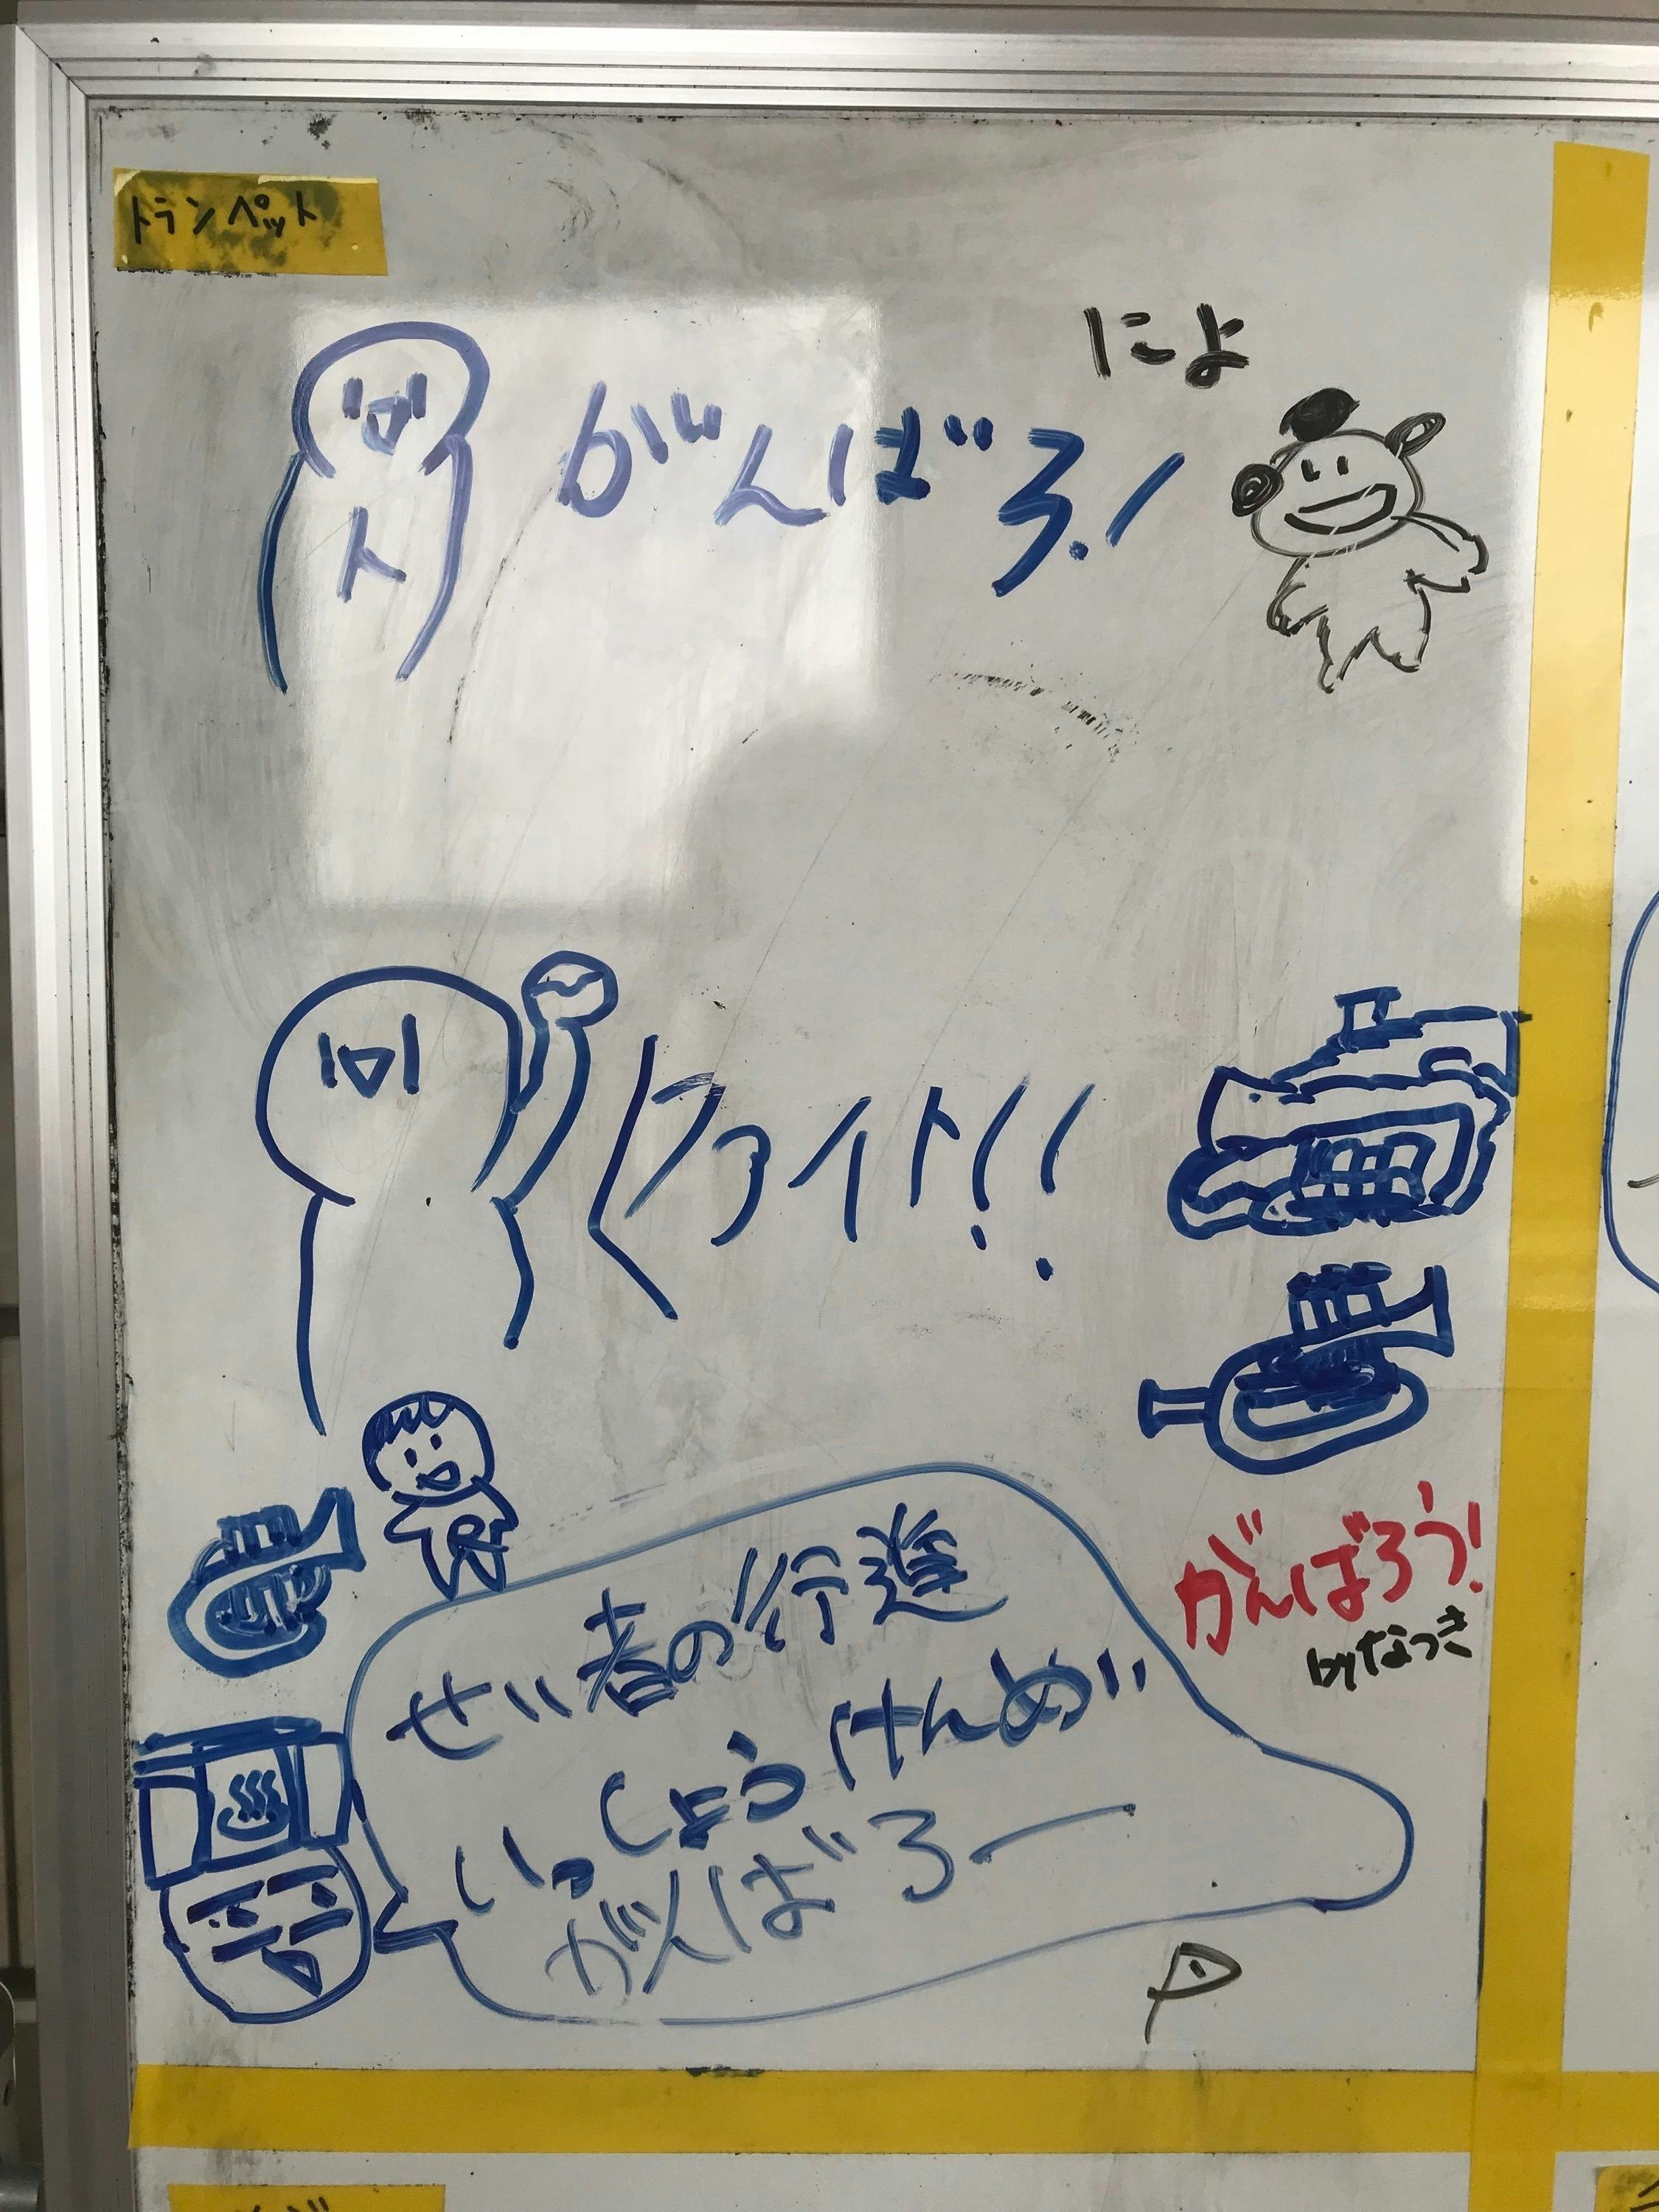 トランペット
によ
がんばろ!
ト
ファイト!!
がんばろう!
byなつき
せい者の行進
いっしょうけんめい
がんばろー
P